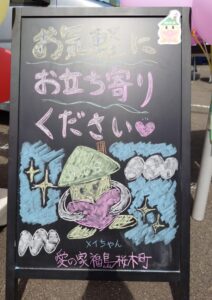 お気軽に
お立ち寄り
ください
メイちゃん
愛の家福島桜木町